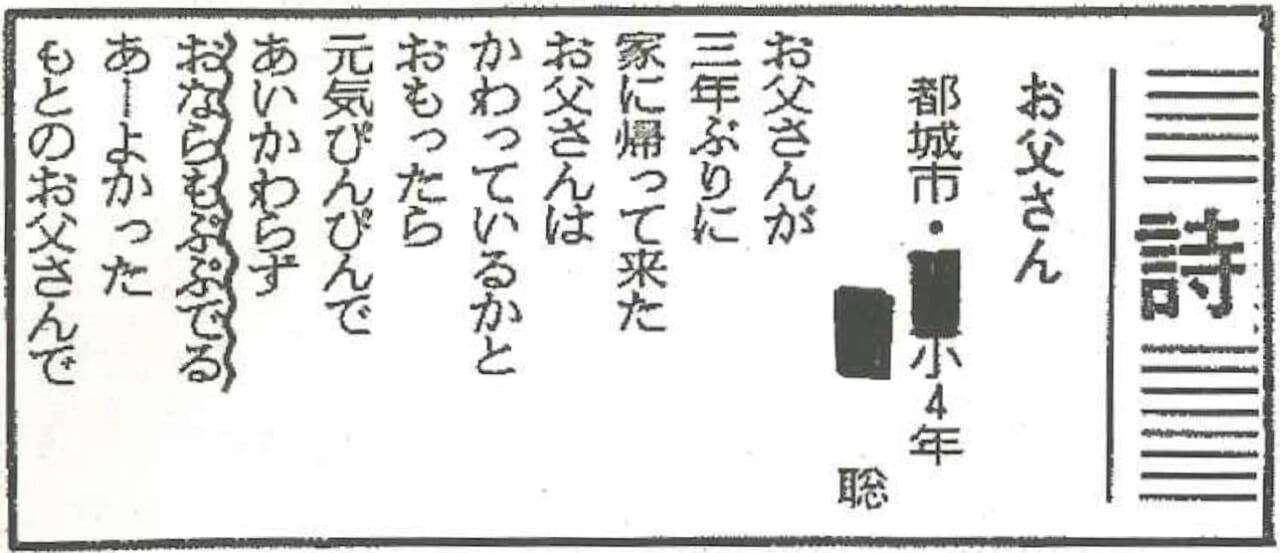 詩
お父さん
都城市・小4年
聡
お父さんが
三年ぶりに
家に帰って来た
お父さんは
かわっているかと
おもったら
元気ぴんぴんで
あいかわらず
おならもぷぷでる
あーよかった
もとのお父さんで